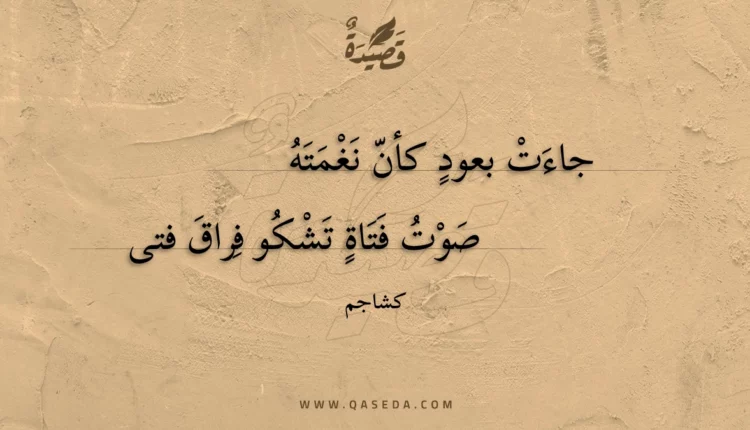 قَصِيدَةٌ
جاءَتْ بعودٍ كأنّ نَغْمَتَهُ
صَوْتُ فَتَاةٍ تَشْكُو فِراقَ فتى
كشاجم
WWW.QASEDA.COM